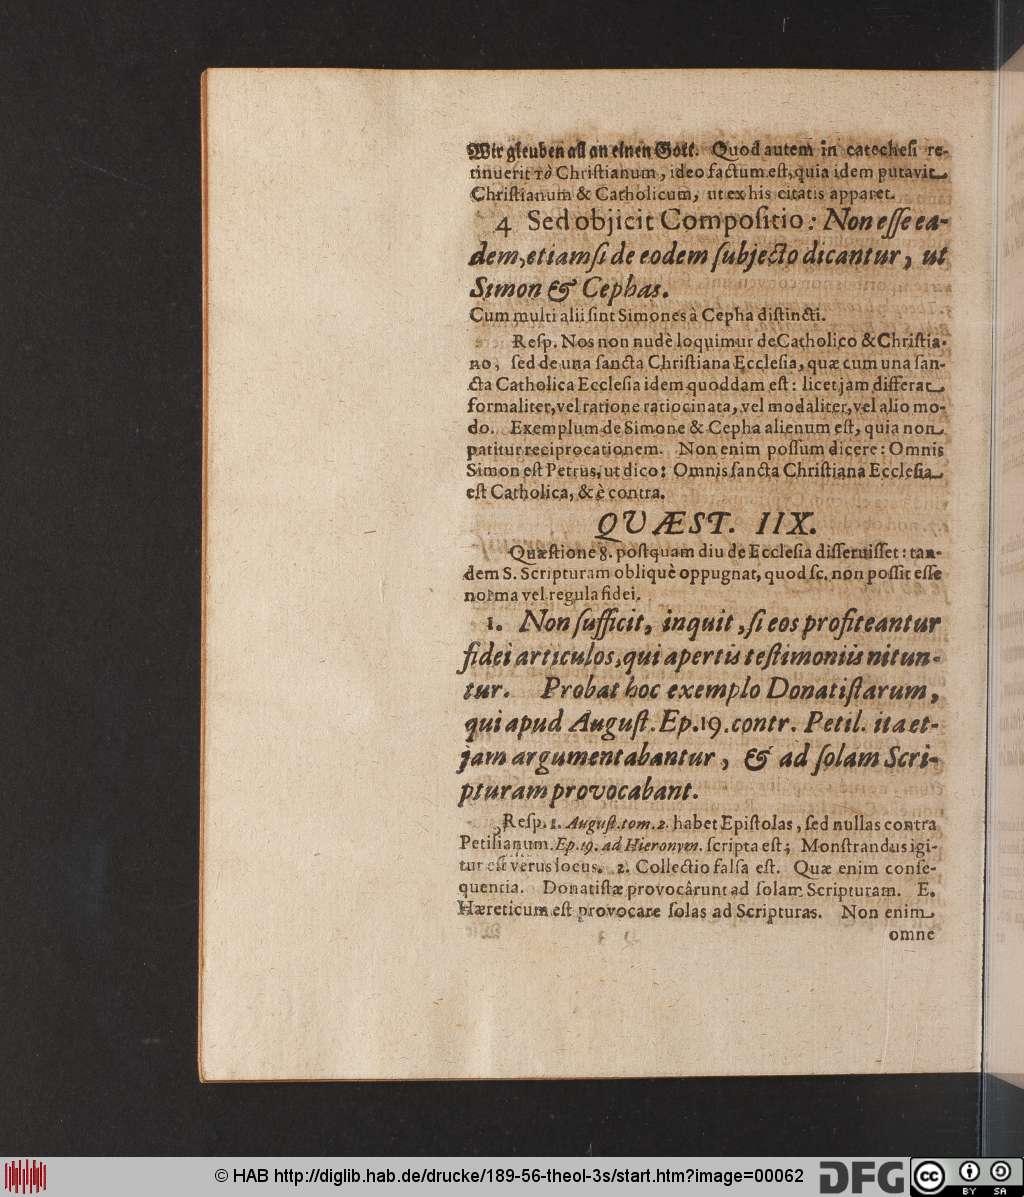 Wir gleuben all an einen Gott. Quod autem in catechesi re-
tinuerit τὸ Christianum, ideo factum est, quia idem putavit
Christianum & Catholicum, ut ex his citatis apparet.
4 Sed objicit Compositio: Non esse ea-
dem, etiamsi de eodem subjecto dicantur, ut
Simon & Cephas.
Cum multi alii sint Simones à Cepha distincti.
Resp. Nos non nudè loquimur de Catholico & Christia-
no, sed de una sancta Christiana Ecclesia, quæ cum una san-
cta Catholica Ecclesia idem quoddam est: licet jam differat
formaliter, vel ratione ratiocinata, vel modaliter, vel alio mo-
do. Exemplum de Simone & Cepha alienum est, quia non
patitur reciprocationem. Non enim possum dicere: Omnis
Simon est Petrus, ut dico: Omnis sancta Christiana Ecclesia
est Catholica, & è contra.
QUÆST. IIX.
Quæstione 8. postquam diu de Ecclesia disseruisset: tan-
dem S. Scripturam obliquè oppugnat, quod sc. non possit esse
norma vel regula fidei.
1. Non sufficit, inquit, si eos profiteantur
fidei articulos, qui apertis testimoniis nitun-
tur. Probat hoc exemplo Donatistarum,
qui apud August. Ep. 19. contr. Petil. ita et-
jam argumentabantur, & ad solam Scri-
pturam provocabant.
Resp. 1. August. tom. 2. habet Epistolas, sed nullas contra
Petilianum. Ep. 19. ad Hieronym. scripta est; Monstrandus igi-
tur est verus locus. 2. Collectio falsa est. Quæ enim conse-
quentia. Donatistæ provocârunt ad solam Scripturam. E.
Hæreticum est provocare solas ad Scripturas. Non enim
omne
© HAB http://diglib.hab.de/drucke/189-56-theol-3s/start.htm?image=00062
DFG
cc
BY SA